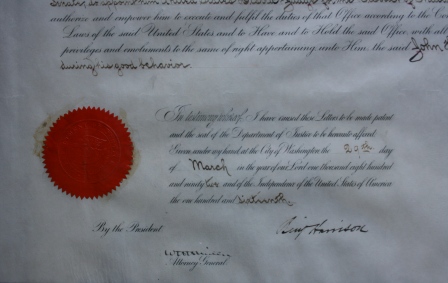 authorize and empower him to execute and fulfil the duties of that Office according to the
Laws of the said United States and to Have and to Hold the said Office, with all
privileges and emoluments to the same of right appertaining, unto Him, the said John
during good behavior.
In testimony whereof, I have caused these Letters to be made patent
and the seal of the Department of Justice to be hereunto affixed.
Given under my hand at the City of Washington the 23rd day
of March in the year of our Lord one thousand eight hundred
and ninety two and of the Independence of the United States of America
the one hundred and sixteenth.
By the President Benj Harrison
Attorney General